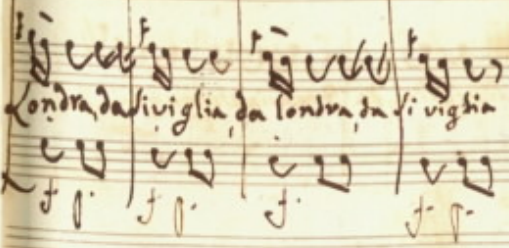 Londra, da Siviglia, da londra, da Siviglia
f. p. f. p. f. f. p.